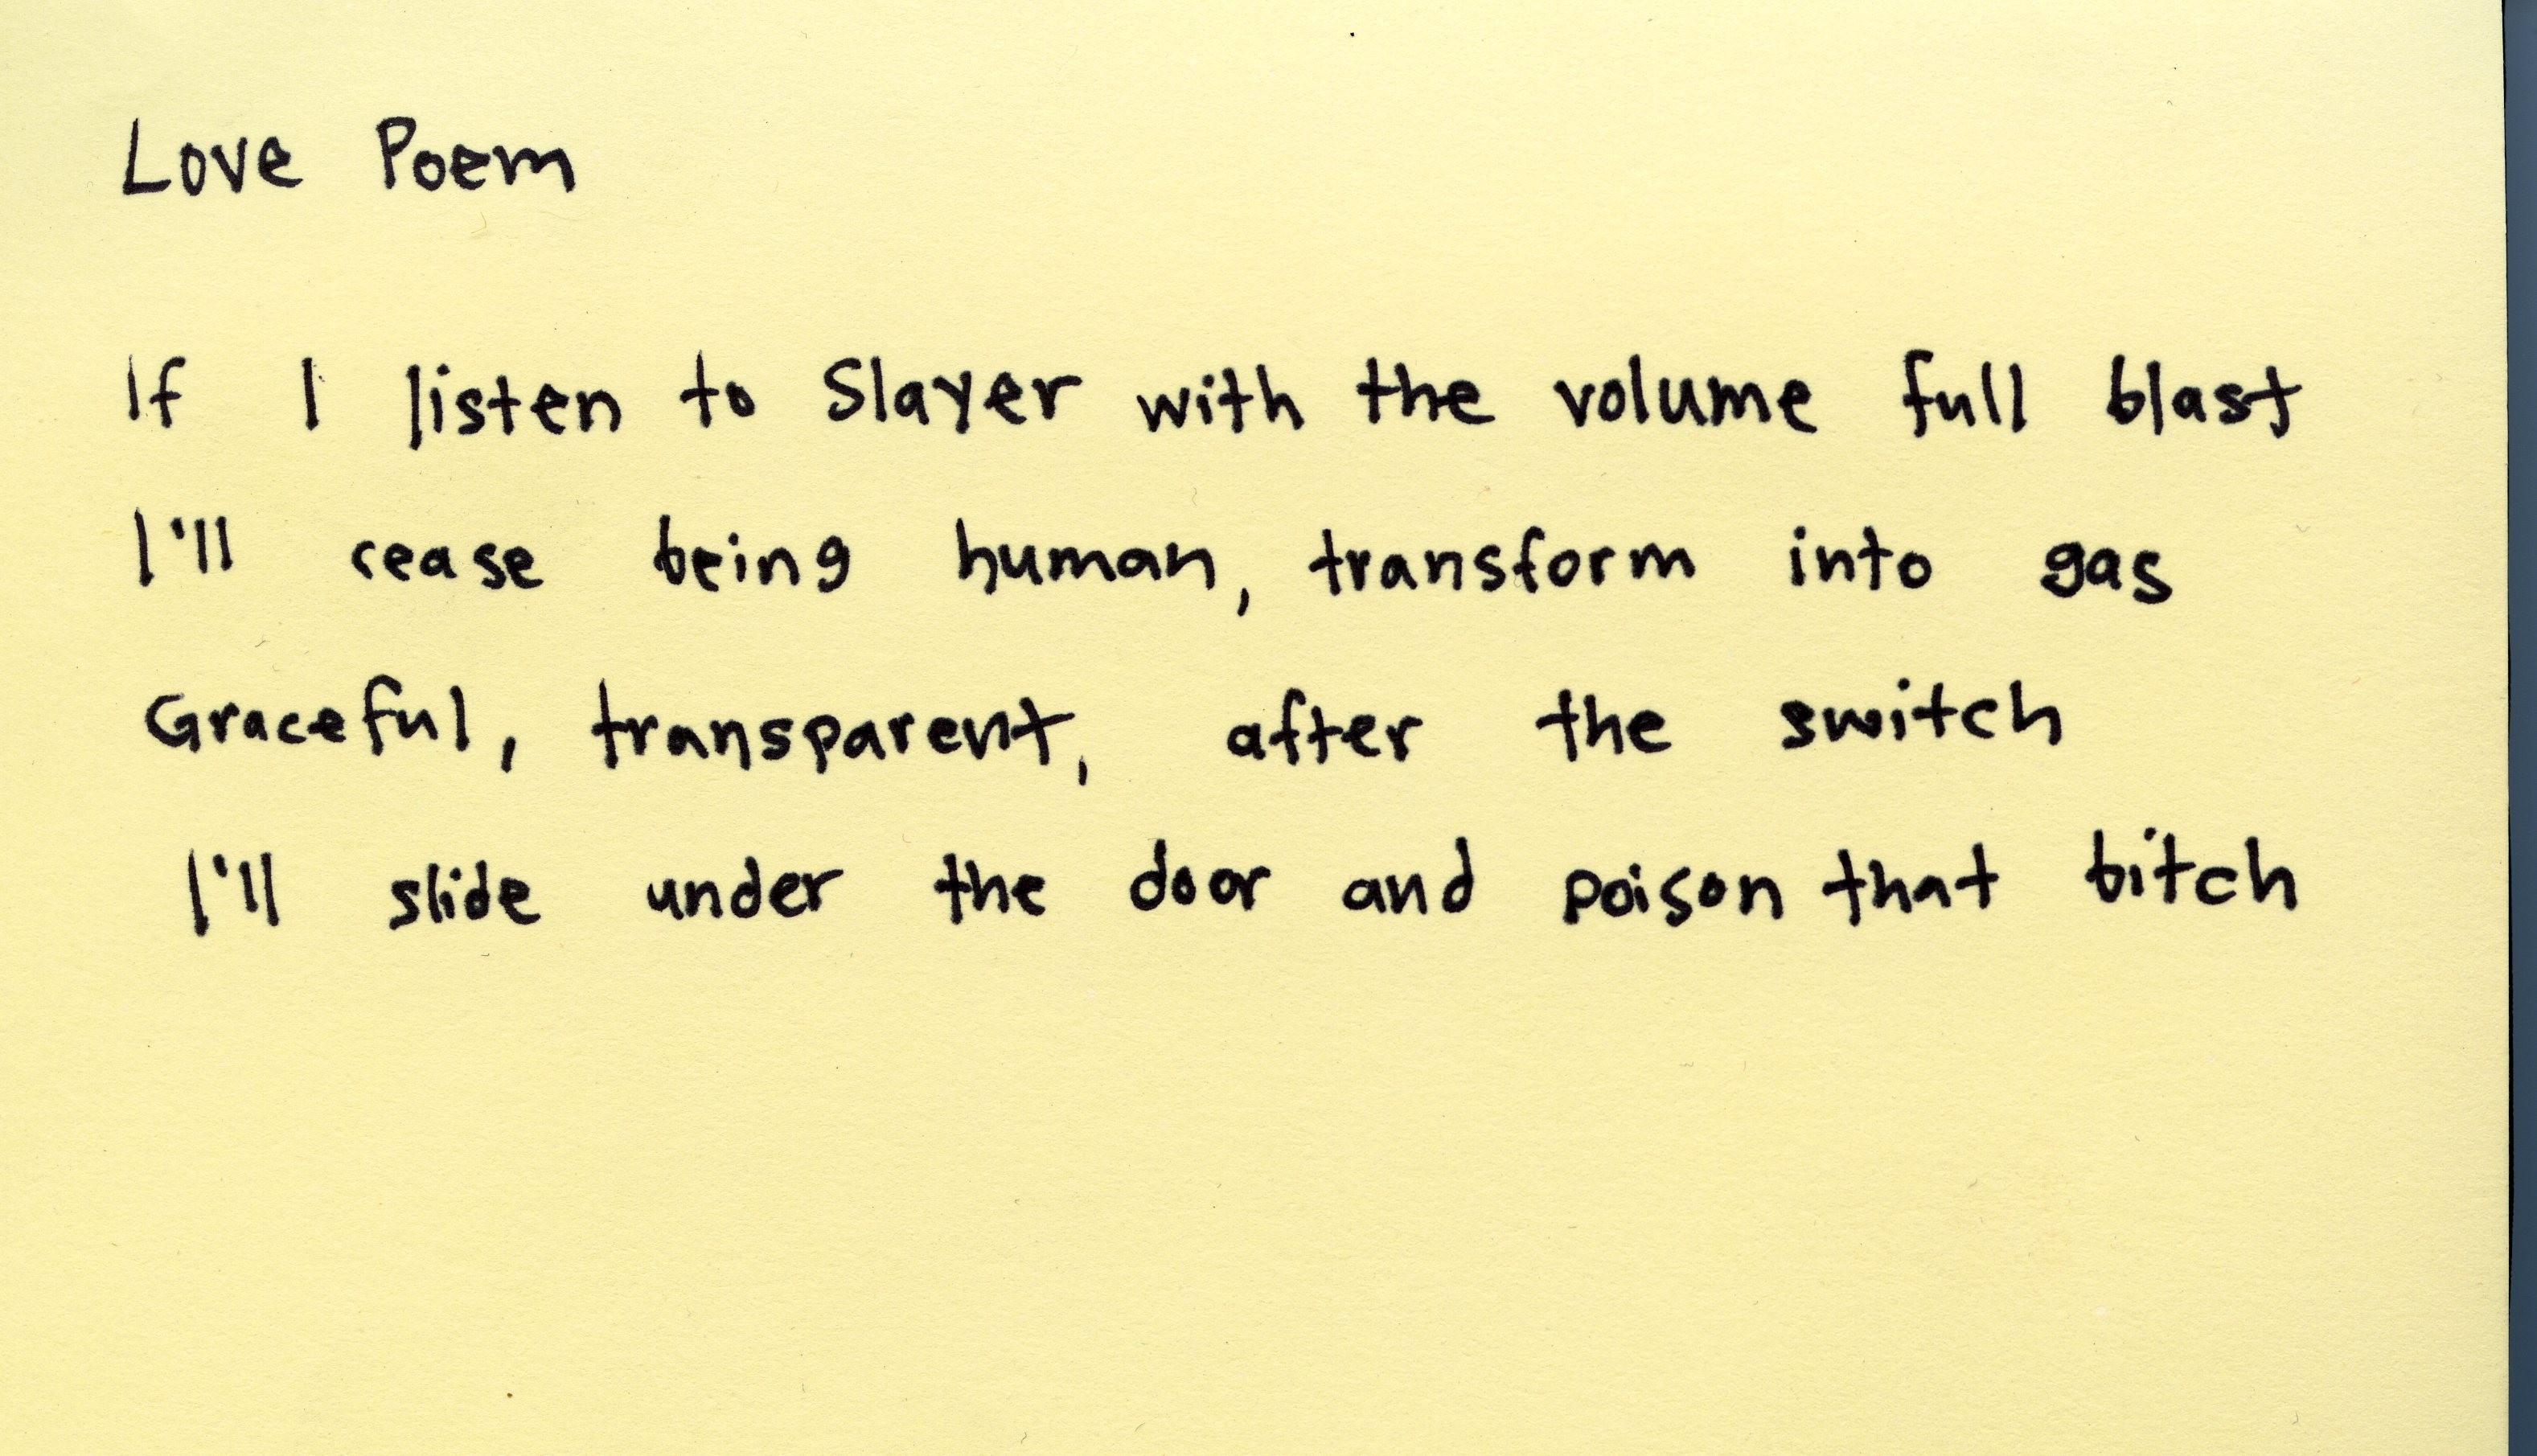 Love Poem
If I listen to Slayer with the volume full blast
I'll cease being human, transform into gas
Graceful, transparent, after the switch
I'll slide under the door and poison that bitch